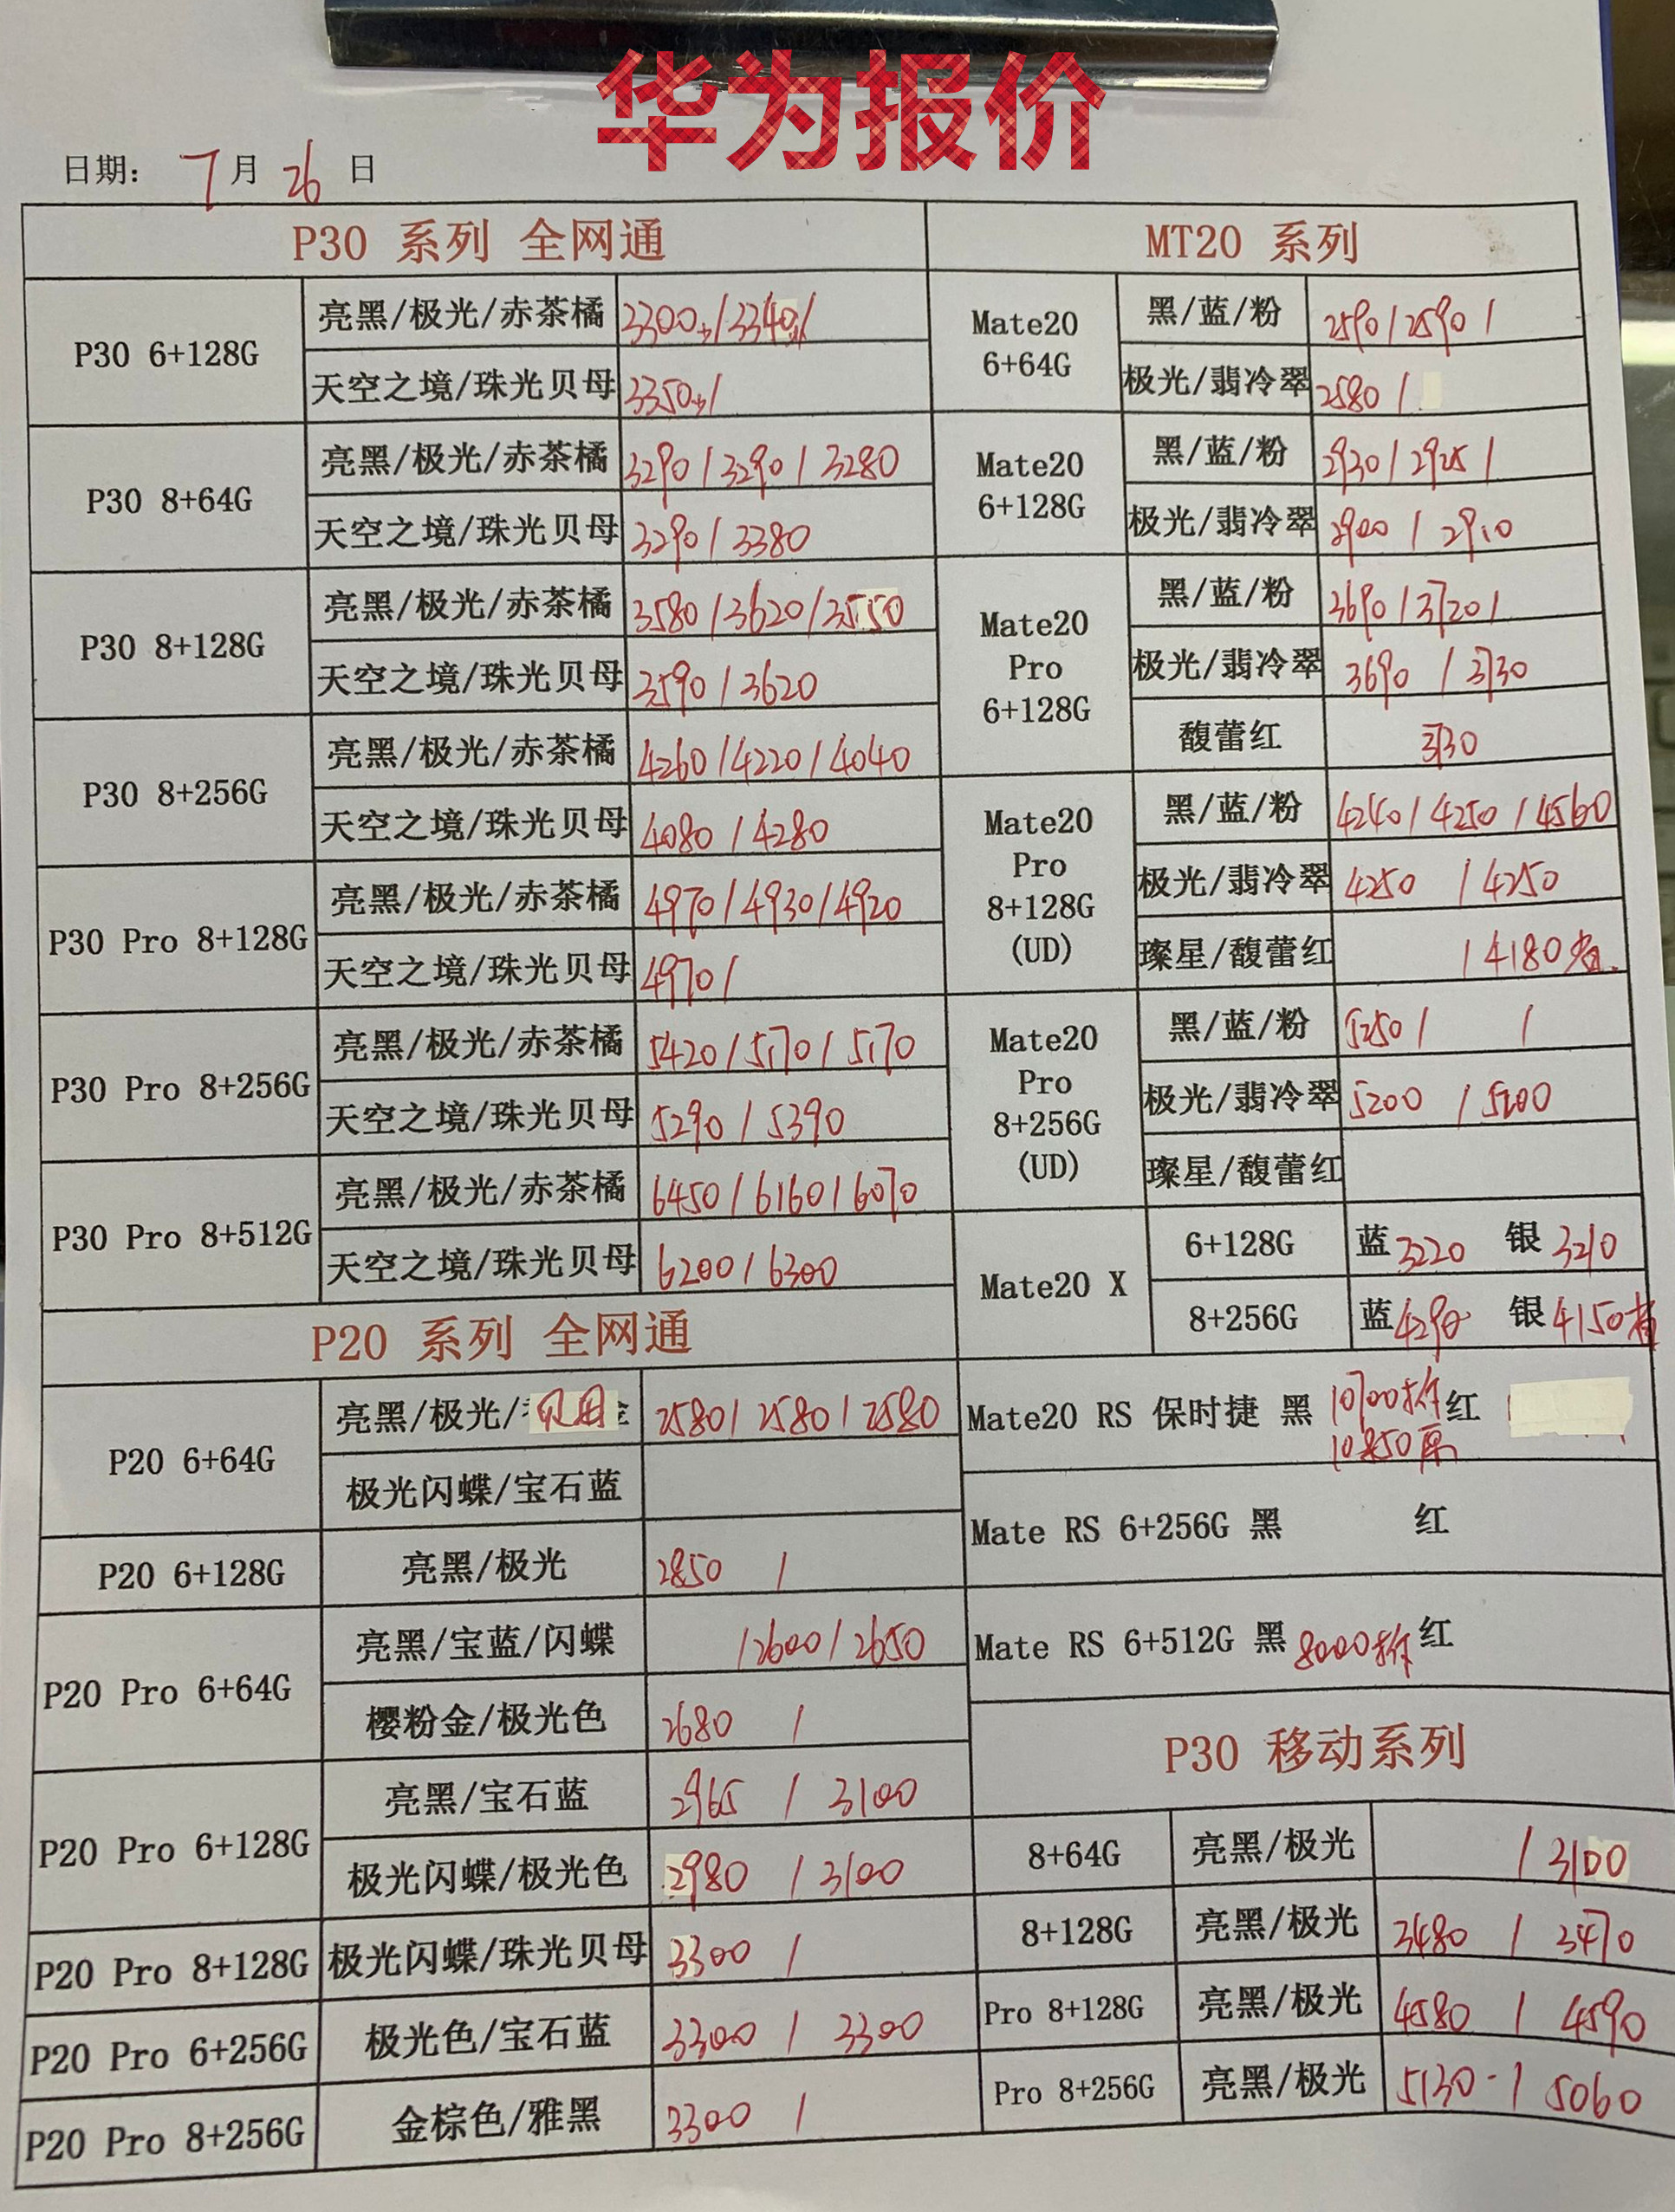 华为报价
日期: 7月26日
P30 系列 全网通
P30 6+128G
亮黑/极光/赤茶橘 3300/3340/
天空之境/珠光贝母 3350/
P30 8+64G
亮黑/极光/赤茶橘 3290/3290/3280
天空之境/珠光贝母 3290/3380
P30 8+128G
亮黑/极光/赤茶橘 3580/3620/3550
天空之境/珠光贝母 3590/3620
P30 8+256G
亮黑/极光/赤茶橘 4260/4220/4040
天空之境/珠光贝母 4080/4280
P30 Pro 8+128G
亮黑/极光/赤茶橘 4970/4930/4920
天空之境/珠光贝母 4970/
P30 Pro 8+256G
亮黑/极光/赤茶橘 5420/5170/5170
天空之境/珠光贝母 5290/5390
P30 Pro 8+512G
亮黑/极光/赤茶橘 6450/6160/6070
天空之境/珠光贝母 6200/6300
P20 系列 全网通
P20 6+64G
亮黑/极光/ 2580/2580/2580
极光闪蝶/宝石蓝
P20 6+128G
亮黑/极光 2850 /
P20 Pro 6+64G
亮黑/宝蓝/闪蝶 /2600/2650
樱粉金/极光色 2680 /
P20 Pro 6+128G
亮黑/宝石蓝 2965 / 3100
极光闪蝶/极光色 2980 / 3100
P20 Pro 8+128G
极光闪蝶/珠光贝母 3300 /
P20 Pro 6+256G
极光色/宝石蓝 3300 / 3300
P20 Pro 8+256G
金棕色/雅黑 3300 /
MT20 系列
Mate20
6+64G
黑/蓝/粉 2590/2590/
极光/翡冷翠 2580/
Mate20
6+128G
黑/蓝/粉 2930/2925/
极光/翡冷翠 2900 / 2910
Mate20
Pro
6+128G
黑/蓝/粉 3690/3720/
极光/翡冷翠 3690 / 3730
馥蕾红 3730
Mate20
Pro
8+128G
(UD)
黑/蓝/粉 4240/4250/4560
极光/翡冷翠 4250 / 4250
璨星/馥蕾红 / 4180
Mate20
Pro
8+256G
(UD)
黑/蓝/粉 5250/ /
极光/翡冷翠 5200 / 5200
璨星/馥蕾红
Mate20 X
6+128G 蓝 3220 银 3210
8+256G 蓝 4290 银 4150
Mate20 RS 保时捷 黑 10700拆 红
10850原
Mate RS 6+256G 黑 红
Mate RS 6+512G 黑 8000拆 红
P30 移动系列
8+64G 亮黑/极光 / 3100
8+128G 亮黑/极光 3480 / 3470
Pro 8+128G 亮黑/极光 4580 / 4590
Pro 8+256G 亮黑/极光 5130 / 5060